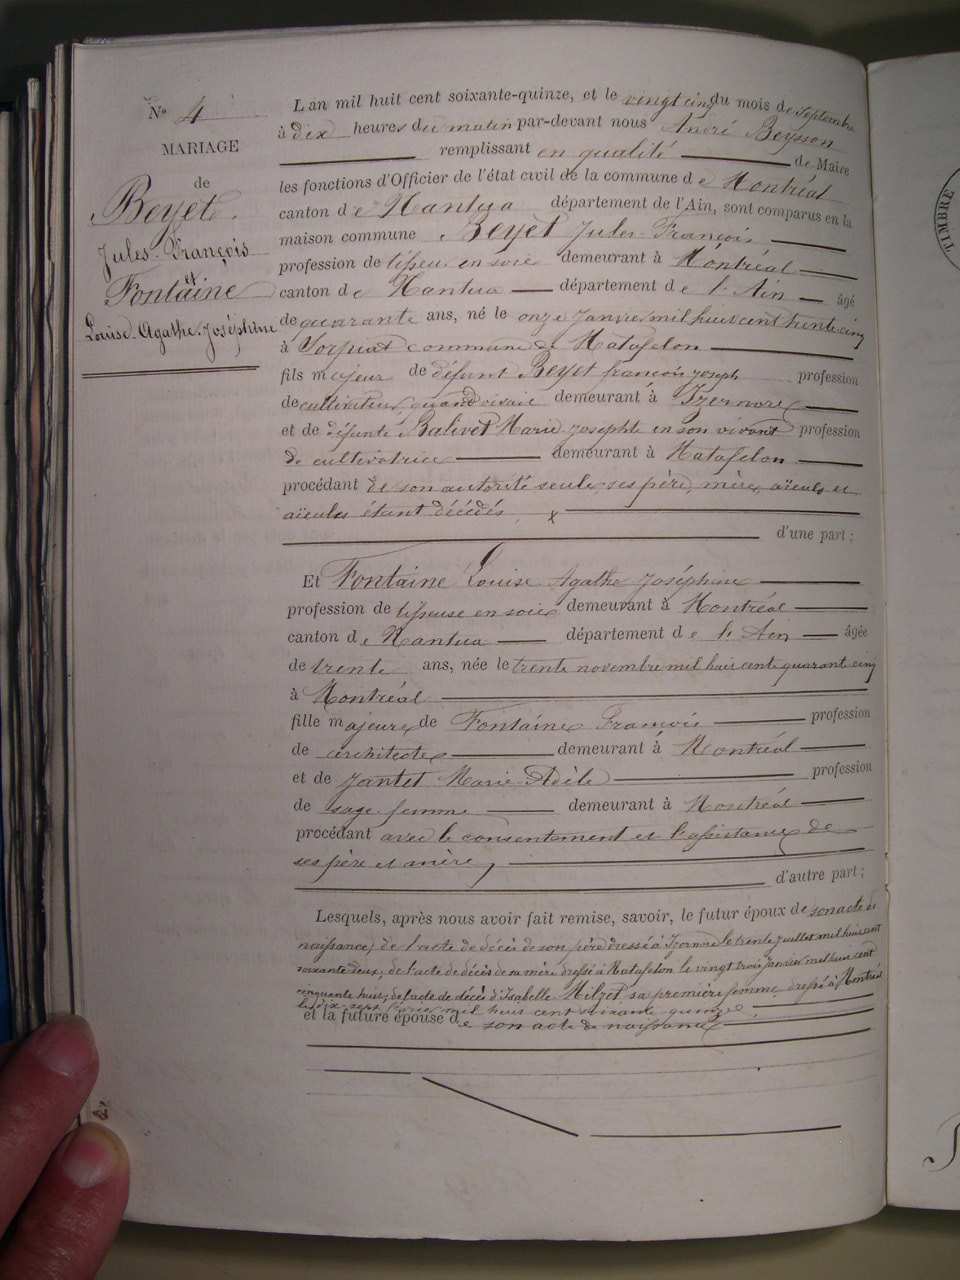 N° 4
MARIAGE
de
Beyet
Jules-François
et
Fontaine
Louise-Agathe-Joséphine
L'an mil huit cent soixante-quinze, et le vingt cinq du mois de Septembre
à dix heures du matin par-devant nous André Beysson
remplissant en qualité de Maire
les fonctions d'Officier de l'état civil de la commune de Montréal
canton de Nantua département de l'Ain, sont comparus en la
maison commune Beyet Jules-François
profession de tisseur en soie demeurant à Montréal
canton de Nantua département de l'Ain âgé
de quarante ans, né le onze Janvier mil huit cent trente cinq
à Sorpiat commune de Matafelon
fils majeur de défunt Beyet françois joseph profession
de cultivateur, quand vivait demeurant à Izernore
et de défunte Balivet Marie josephte en son vivant profession
de cultivatrice demeurant à Matafelon
procédant de son autorité seule, ses père, mère, aïeuls et
aïeules étant décédés
d'une part;
Et Fontaine Louise Agathe Joséphine
profession de tisseuse en soie demeurant à Montréal
canton de Nantua département de l'Ain âgée
de trente ans, née le trente novembre mil huit cent quarante cinq
à Montréal
fille majeure de Fontaine François profession
de architecte demeurant à Montréal
et de Jantet Marie-Adèle profession
de sage femme demeurant à Montréal
procédant avec le consentement et l'assistance de
ses père et mère,
d'autre part;
Lesquels, après nous avoir fait remise, savoir, le futur époux de son acte de
naissance, de l'acte de décès de son père dressé à Izernore le trente juillet mil huit cent
soixante deux, de l'acte de décès de sa mère dressé à Matafelon le vingt trois janvier mil huit cent
cinquante huit; de l'acte de décès d'Isabelle Milzet sa première femme, dressé à Montréal
le dix-sept mil huit cent soixante quinze
et la future épouse de son acte de naissance
TIMBRE